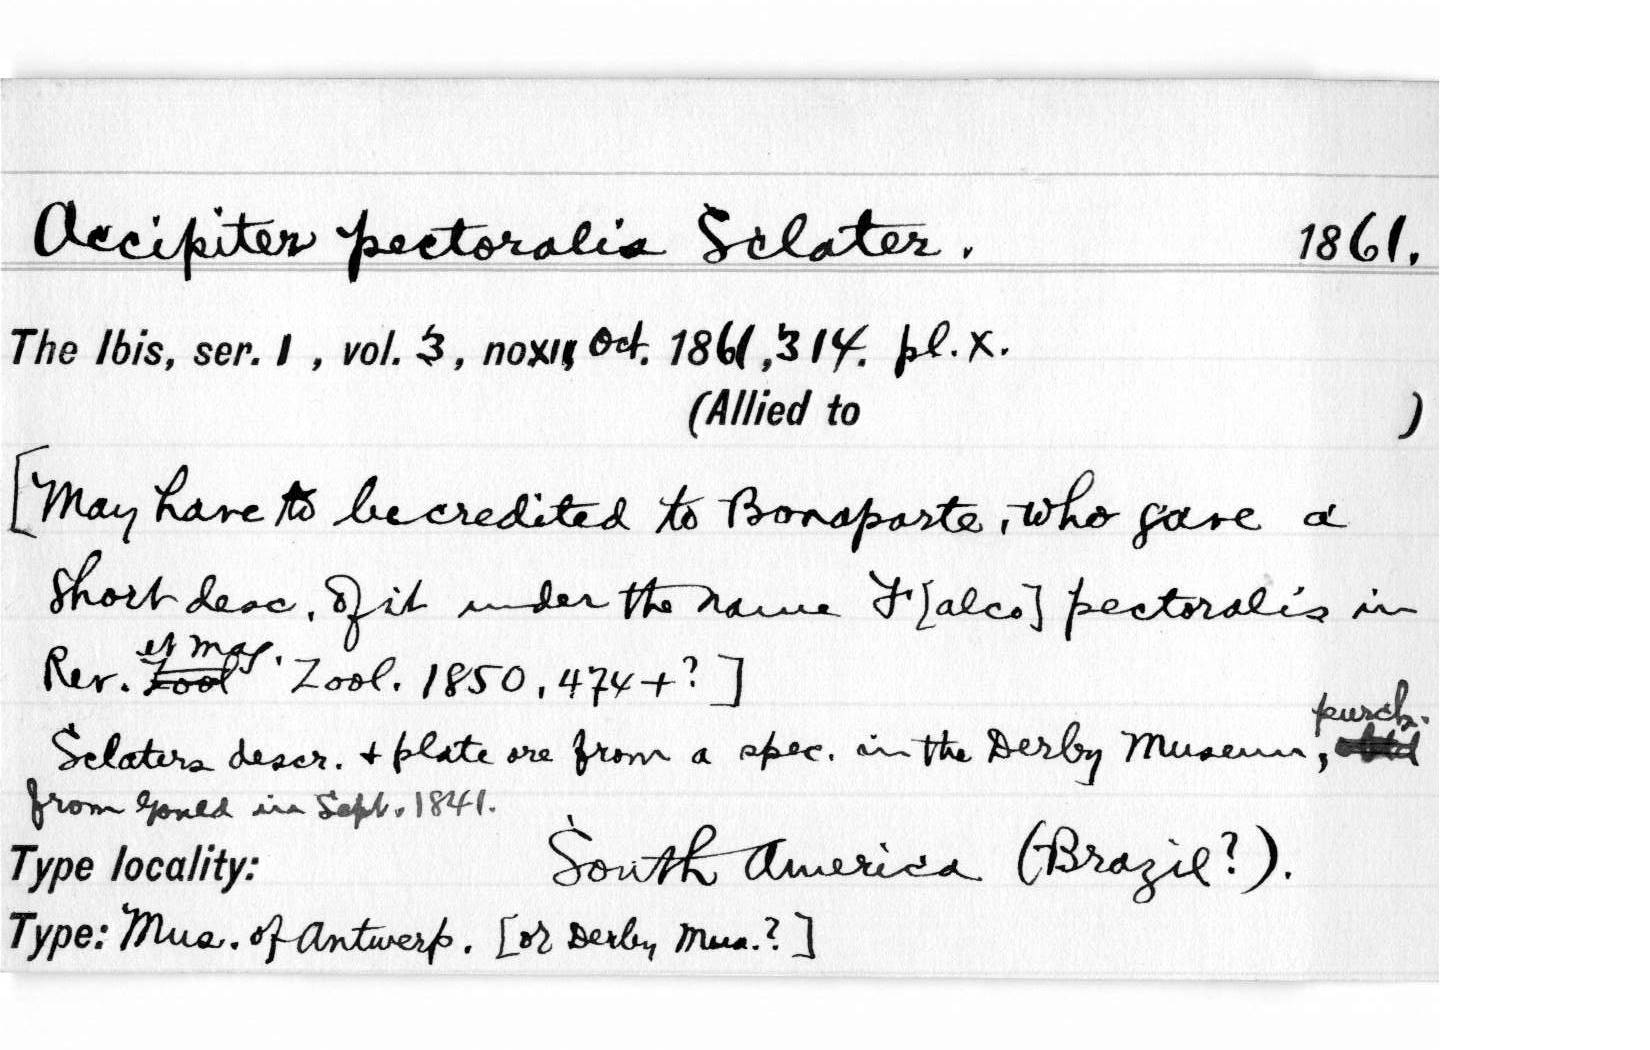 Accipiter pectoralis Sclater. 1861.
The Ibis, ser. 1, vol. 3, no XII, Oct. 1861, 314. pl. X.
(Allied to )
[May have to be credited to Bonaparte, who gave a
short desc. of it under the name F[alco] pectoralis in
Rev. et Mag. Zool. 1850, 474+?]
Sclaters descr. + plate are from a spec. in the Derby Museum, purch.
from Gould in Sept. 1841.
Type locality: South America (Brazil?).
Type: Mus. of Antwerp. [or Derby Mus.?]